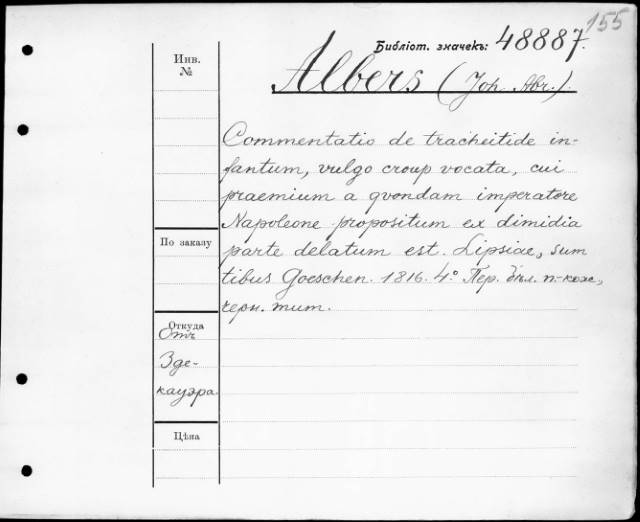 155
Библіот. значекъ: 48887.
Albers (Joh. Abr.).
Инв.
№
Commentatio de tracheitide in-
fantum, vulgo croup vocata, cui
praemium a quondam imperatore
Napoleone propositum ex dimidia
parte delatum est. Lipsiae, sum
tibus Goeschen. 1816. 4° Пер. бѣл. п.-кож.,
черн. тит.
По заказу
Откуда
Отъ
Зде-
кауэра.
Цѣна